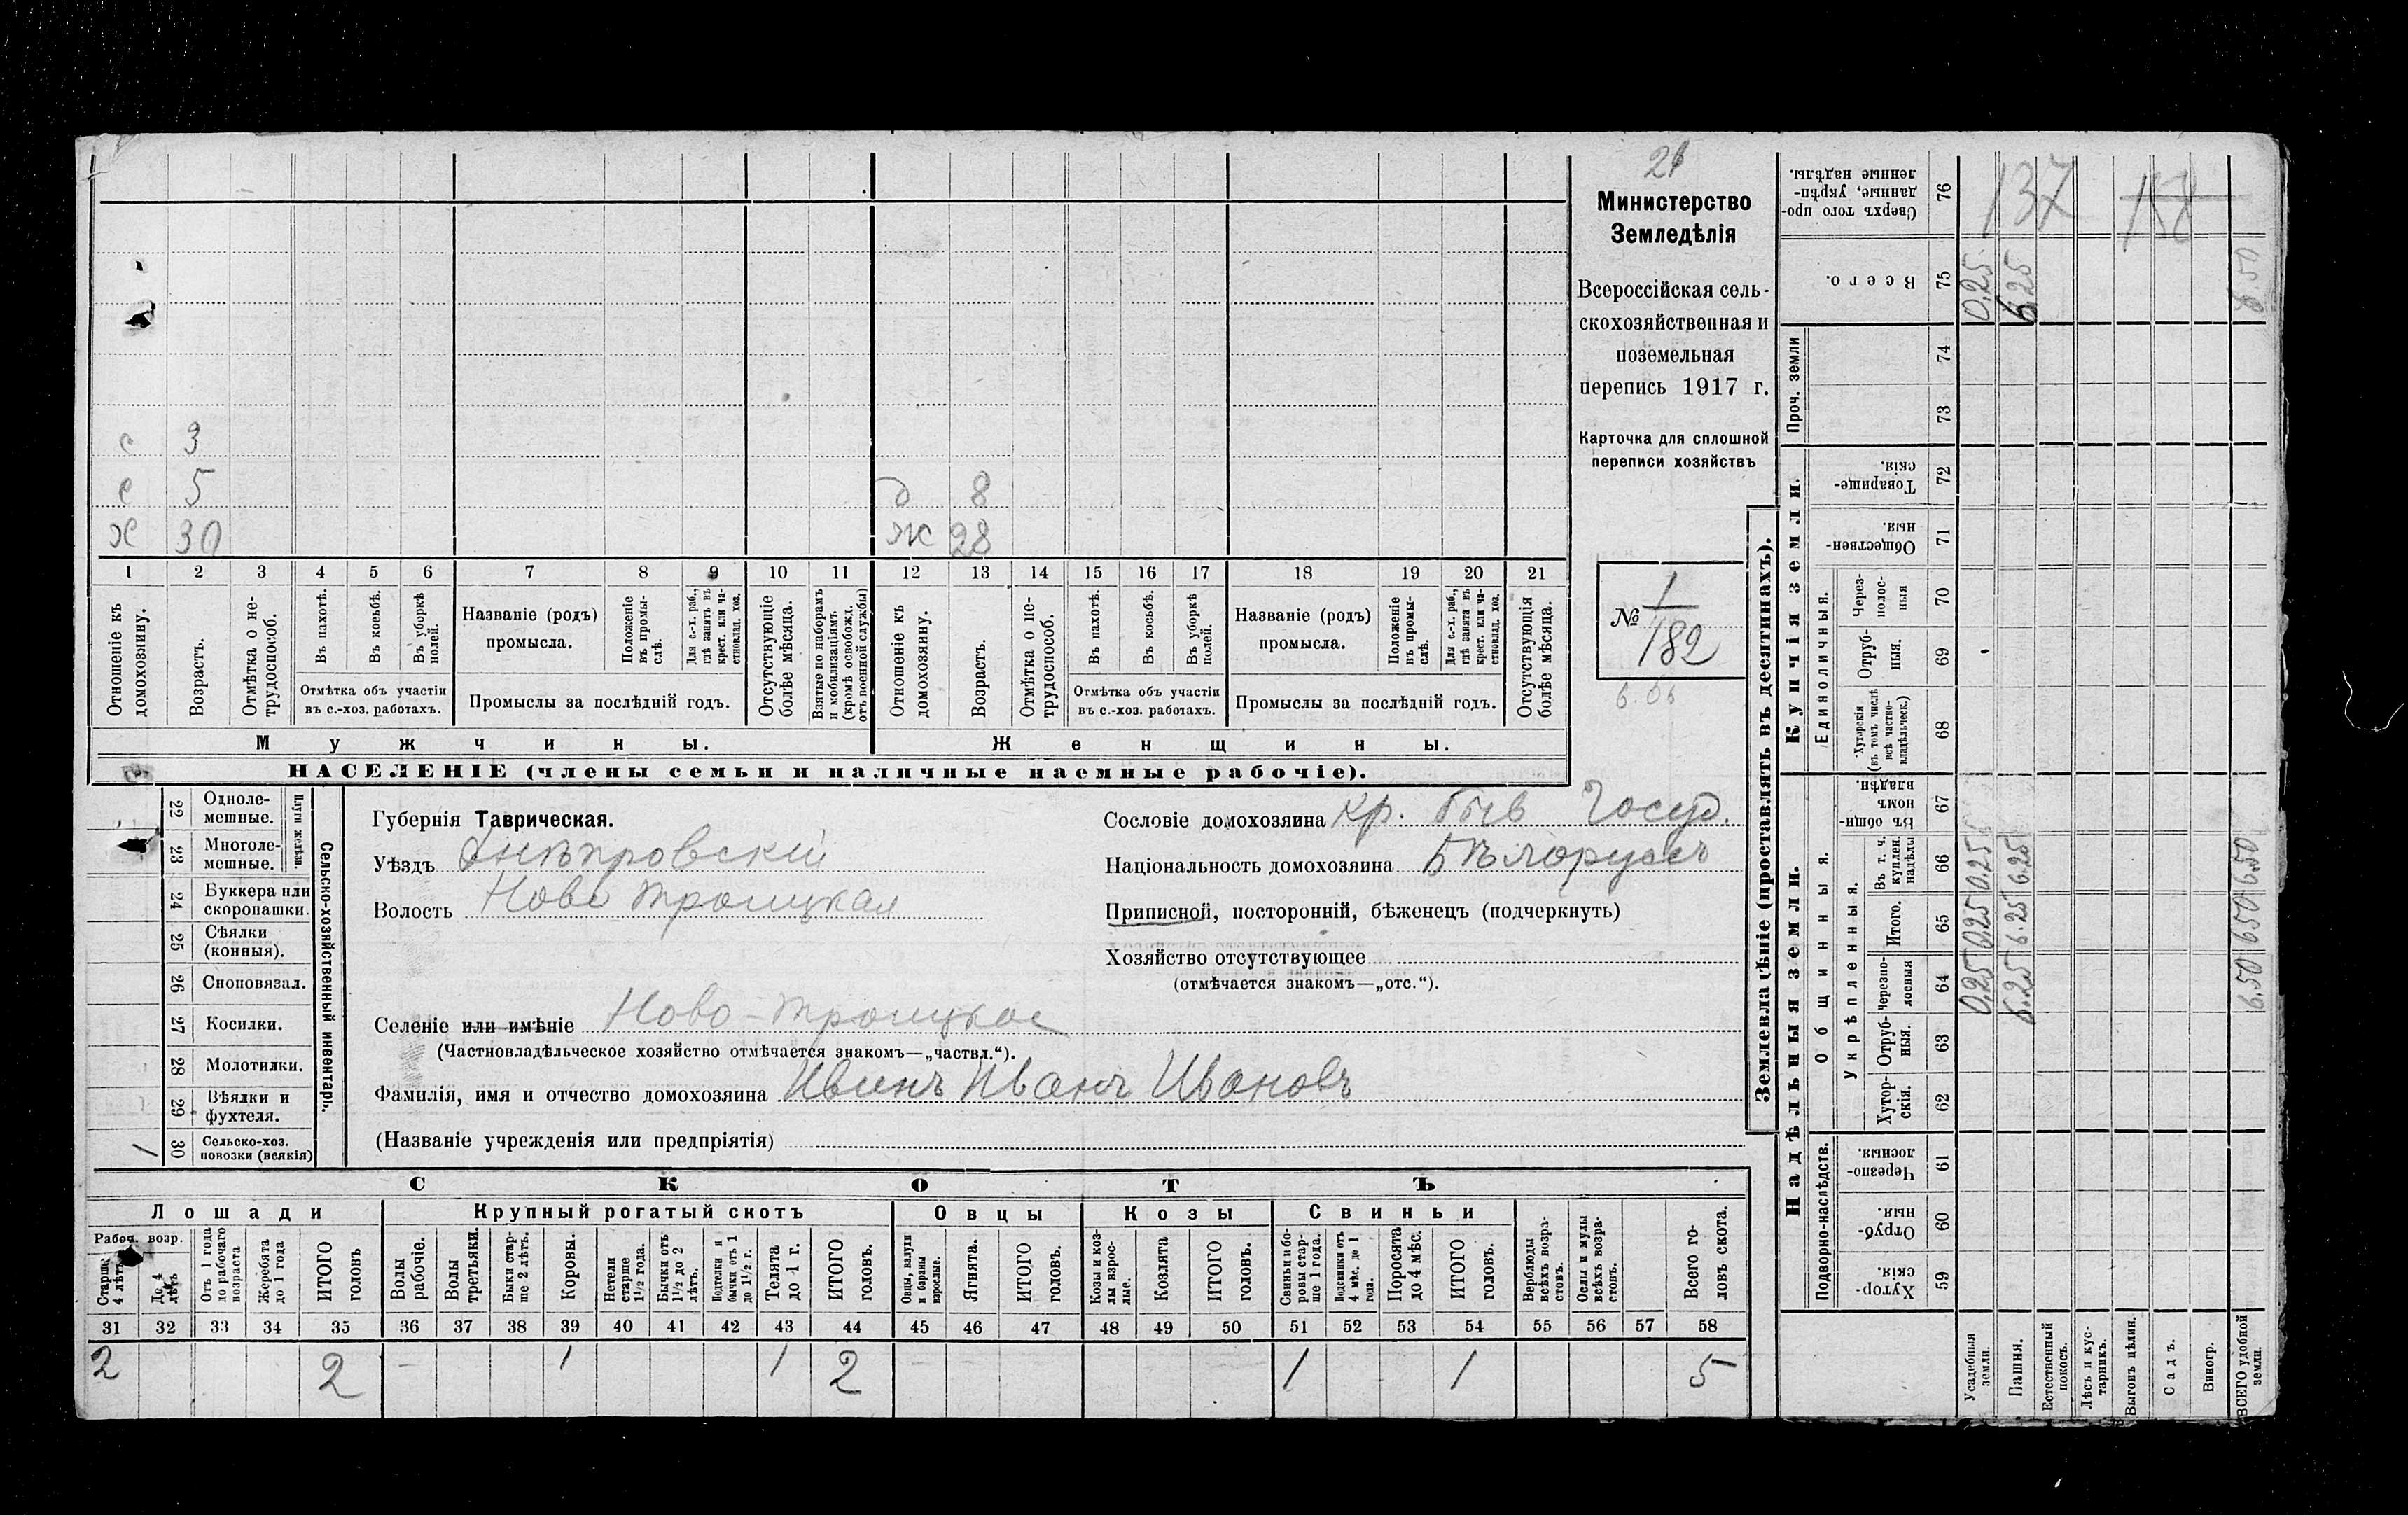 21
Министерство
Земледѣлія
Всероссійская сель-
скохозяйственная и
поземельная
перепись 1917 г.
Карточка для сплошной
переписи хозяйствъ
№ 1
182
с 3
с 5
д 8
х 30
ж 28
1 2 3 4 5 6 7 8 9 10 11 12 13 14 15 16 17 18 19 20 21
Отношеніе къ
домохозяину.
Возрастъ.
Отмѣтка о не-
трудоспособ.
Въ пахотѣ.
Въ косьбѣ.
Въ уборкѣ
полей.
Отмѣтка объ участіи
въ с.-хоз. работахъ.
Названіе (родъ)
промысла.
Положеніе
въ промы-
слѣ.
Для с.-х. раб.,
гдѣ занятъ въ
крест. или ча-
стновлад. хоз.
Промыслы за послѣдній годъ.
Отсутствующіе
болѣе мѣсяца.
Взятые по наборамъ
и мобилизаціямъ
(кромѣ освобожд.
отъ военной службы)
Отношеніе къ
домохозяину.
Возрастъ.
Отмѣтка о не-
трудоспособ.
Въ пахотѣ.
Въ косьбѣ.
Въ уборкѣ
полей.
Отмѣтка объ участіи
въ с.-хоз. работахъ.
Названіе (родъ)
промысла.
Положеніе
въ промы-
слѣ.
Для с.-х. раб.,
гдѣ занята въ
крест. или ча-
стновлад. хоз.
Промыслы за послѣдній годъ.
Отсутствующія
болѣе мѣсяца.
Мужчины.
Женщины.
НАСЕЛЕНІЕ (члены семьи и наличные наемные рабочіе).
Сельско-хозяйственный инвентарь.
Плуги желѣзн.
22 Однолемешные.
23 Многолемешные.
24 Буккера или
скоропашки.
25 Сѣялки
(конныя).
26 Сноповязал.
27 Косилки.
28 Молотилки.
29 Вѣялки и
фухтеля.
1 30 Сельско-хоз.
повозки (всякія)
Губернія Таврическая.
Уѣздъ Днѣпровскій
Волость Ново Троицкая
Селеніе или имѣніе Ново-Троицкое
(Частновладѣльческое хозяйство отмѣчается знакомъ—„частвл.“).
Фамилія, имя и отчество домохозяина Ивинъ Иванъ Ивановъ
(Названіе учрежденія или предпріятія)
Сословіе домохозяина кр. быв Госуд.
Національность домохозяина Бѣлоруссъ
Приписной, посторонній, бѣженецъ (подчеркнуть)
Хозяйство отсутствующее
(отмѣчается знакомъ—„отс.“).
СКОТЪ
Лошади
Крупный рогатый скотъ
Овцы
Козы
Свиньи
Рабоч. возр.
Старше
4 лѣтъ
До 4
лѣтъ
Отъ 1 года
до рабочаго
возраста
Жеребята
до 1 года
ИТОГО
головъ
Волы
рабочіе.
Волы
третьяки.
Быки стар-
ше 2 лѣтъ.
Коровы.
Нетели
старше
1½ года.
Бычки отъ
1½ до 2
лѣтъ.
Подтелки и
бычки отъ 1
до 1½ г.
Телята
до 1 г.
ИТОГО
головъ.
Овцы, валухи
и бараны
взрослые.
Ягнята.
ИТОГО
головъ.
Козы и коз-
лы взрос-
лые.
Козлята
ИТОГО
головъ.
Свиньи и бо-
ровы стар-
ше 1 года.
Подсвинки отъ
4 мѣс. до 1
года.
Поросята
до 4 мѣс.
ИТОГО
головъ.
Верблюды
всѣхъ возра-
стовъ.
Ослы и мулы
всѣхъ возра-
стовъ.
Всего го-
ловъ скота.
31 32 33 34 35 36 37 38 39 40 41 42 43 44 45 46 47 48 49 50 51 52 53 54 55 56 57 58
2 2 – 1 1 2 – – 1 1 5
Землевладѣніе (проставлять въ десятинахъ).
Надѣльныя земли.
Купчія земли.
Проч. земли
Подворно-наслѣдств.
Общинныя.
Укрѣпленныя.
Единоличныя.
Сверхъ того про-
данные, укрѣп-
ленные надѣлы.
76
137 158
Всего.
75
0,25 6,25 6.50
74
73
Товарище-
скія.
72
Обществен-
ныя.
71
Через-
полос-
ныя
70
Отруб-
ныя.
69
Хуторскія
(въ томъ числѣ
всѣ частно-
владѣльческ.)
68
Въ общин-
номъ
владѣн.
67
Въ т. ч.
куплен.
надѣлы
66
0.25 6.25 6.50
Итого.
65
0.25 6.25 6.50
Черезпо-
лосныя
64
0,25 6.25 6.50
Отруб-
ныя.
63
Хутор-
скія.
62
Черезпо-
лосныя.
61
Отруб-
ныя.
60
Хутор-
скія.
59
Усадебныя
земли.
Пашня.
Естественный
покосъ.
Лѣсъ и кус-
тарникъ.
Выгонъ цѣлин.
Садъ.
Виногр.
ВСЕГО удобной
земли.